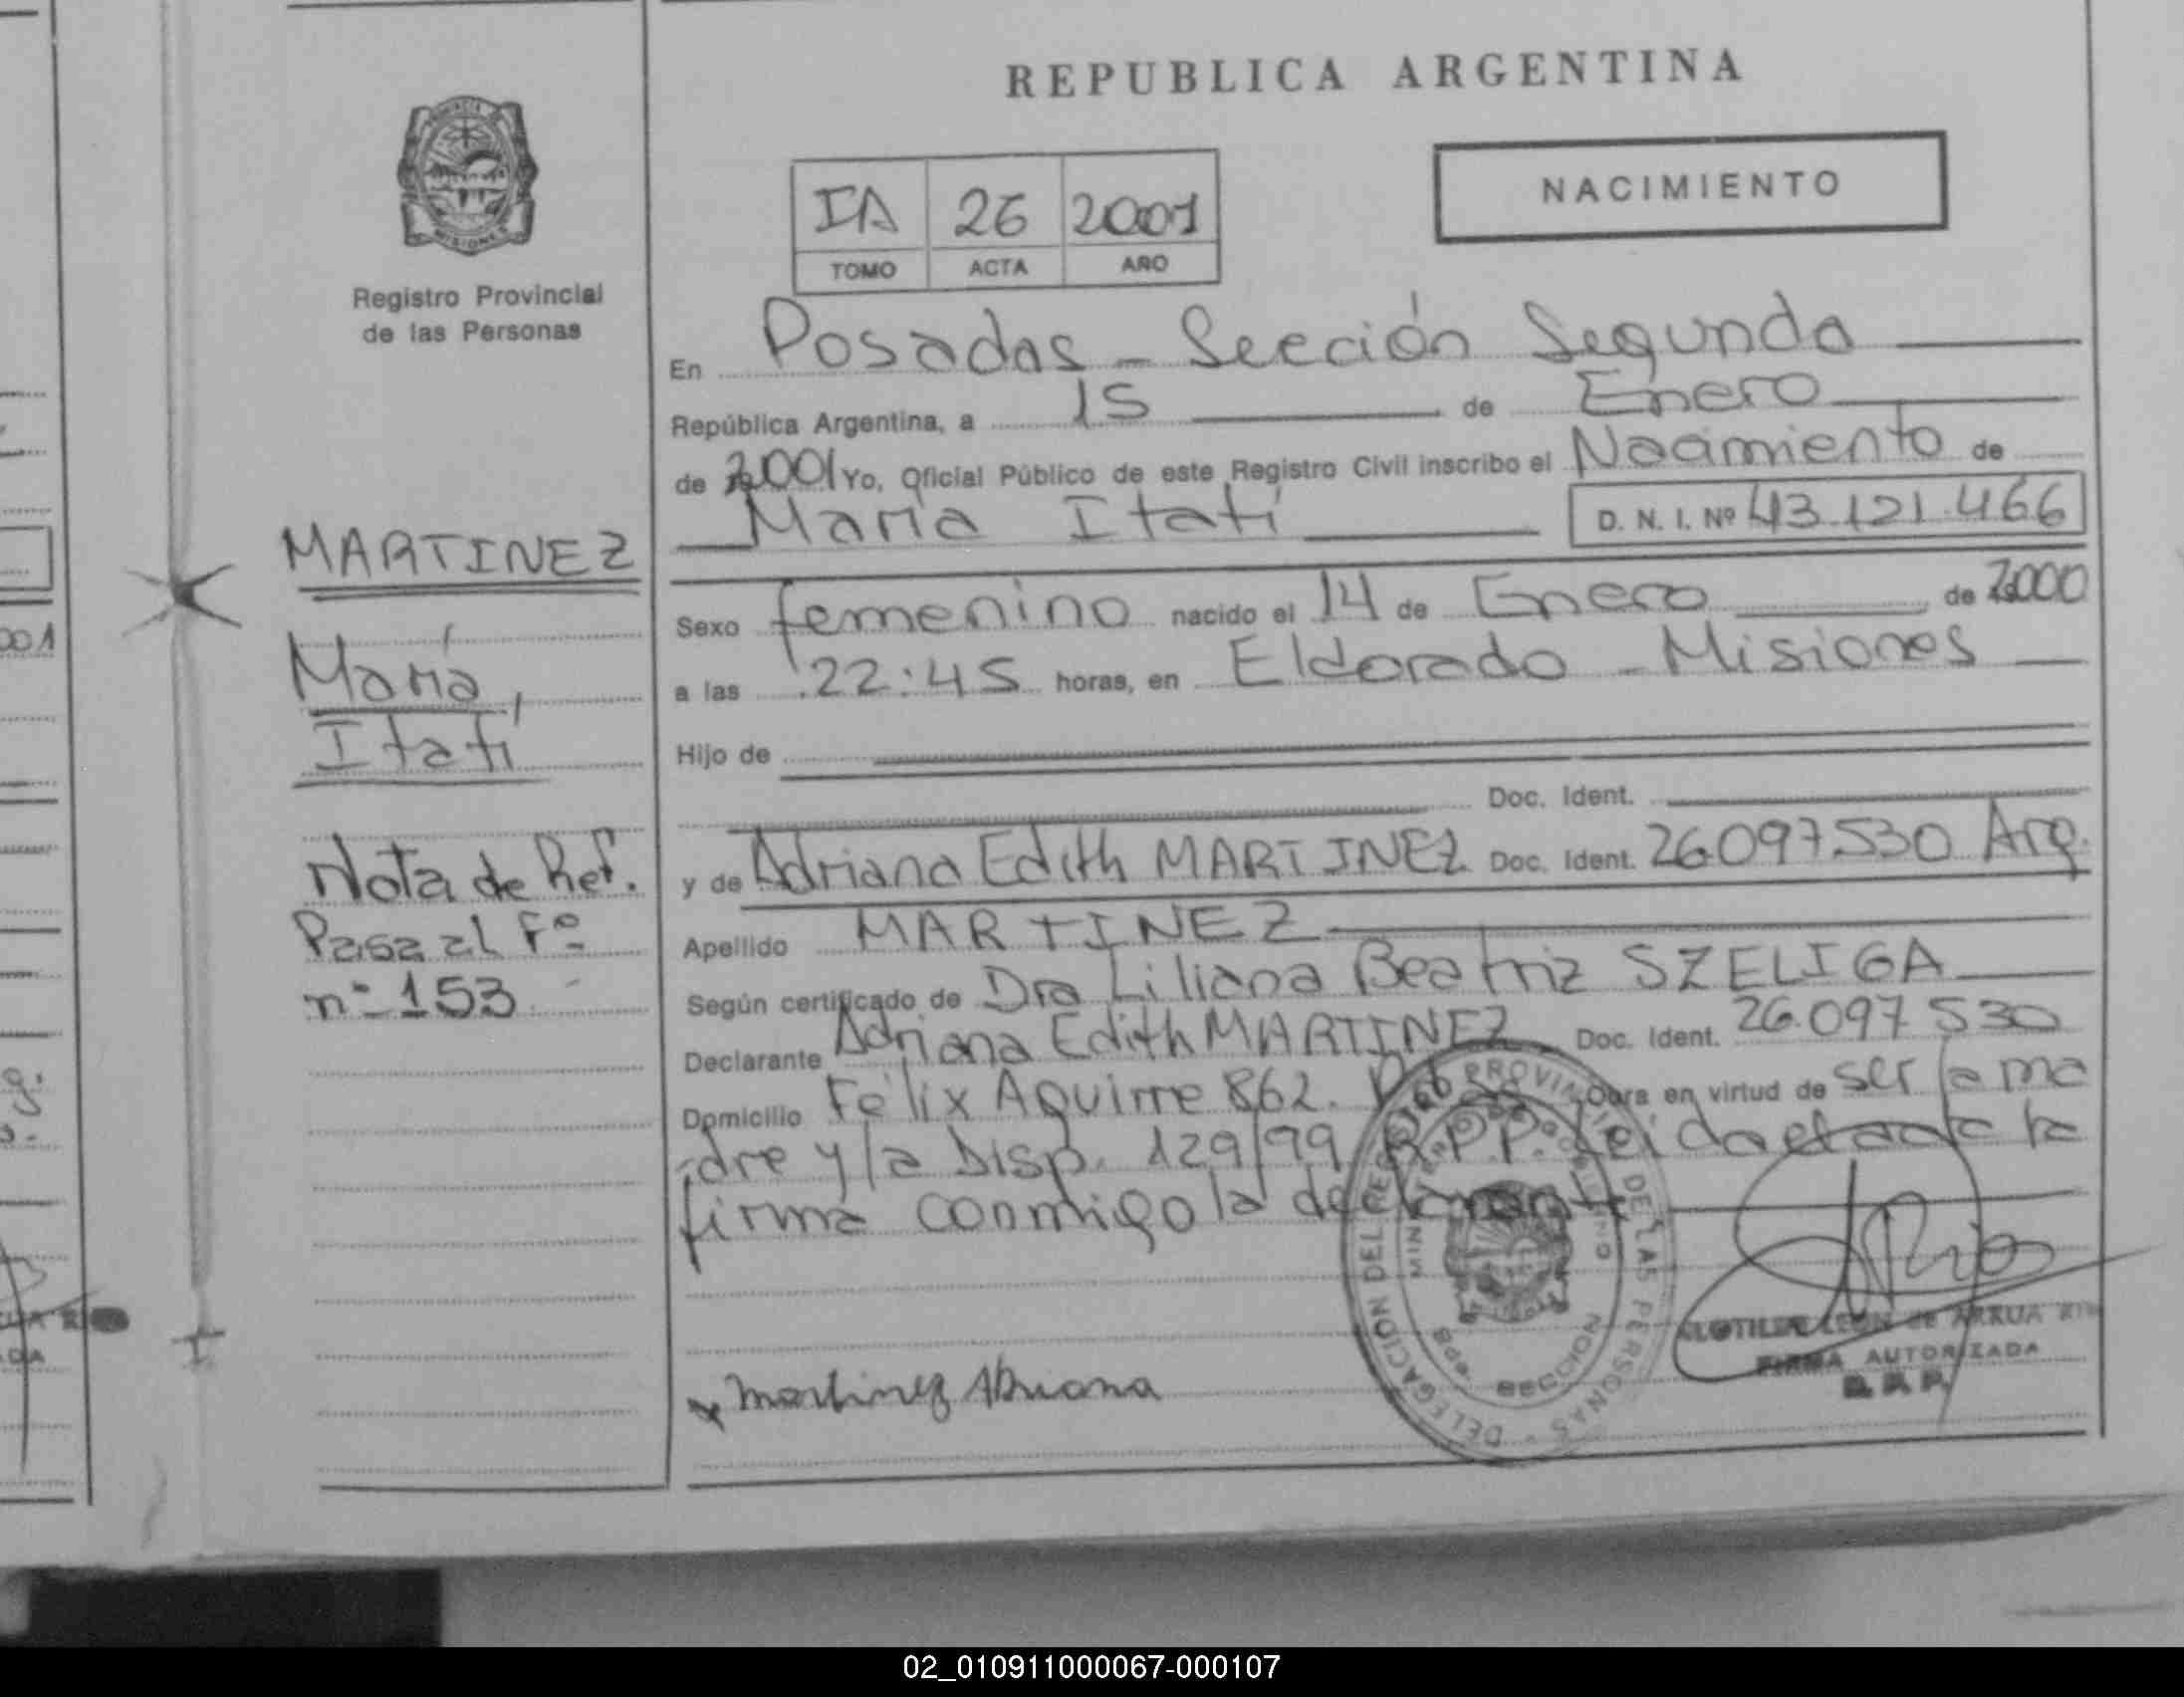 REPUBLICA ARGENTINA
NACIMIENTO
IA 26 2001
TOMO ACTA AÑO
MISIONES
Registro Provincial
de las Personas
En Posadas - Sección Segunda
República Argentina, a 15 de Enero
de 2001 Yo, Oficial Público de este Registro Civil inscribo el Nacimiento de
María Itatí D. N. I. Nº 43.121.466
Sexo femenino nacido el 14 de Enero de 2000
a las 22:45 horas, en Eldorado - Misiones
Hijo de
Doc. Ident.
y de Adriana Edith MARTINEZ Doc. Ident. 26.097.530 Arg.
Apellido MARTINEZ
Según certificado de Dra Liliana Beatriz SZELIGA
Declarante Adriana Edith MARTINEZ Doc. Ident. 26.097.530
Domicilio Félix Aguirre 862. Obra en virtud de ser la ma
dre y/a Disp. 129/99 R.P.P. Leida el acta la
firma conmigo la declarante
Martinez Adriana
MARTINEZ
María,
Itatí
Nota de Ref.
Pasa al Fº
nº 153
DELEGACION DEL REGISTRO PROVINCIAL DE LAS PERSONAS
CLOTILDE LEON de ARRUA
FIRMA AUTORIZADA
R. P. P.
001
02_010911000067-000107